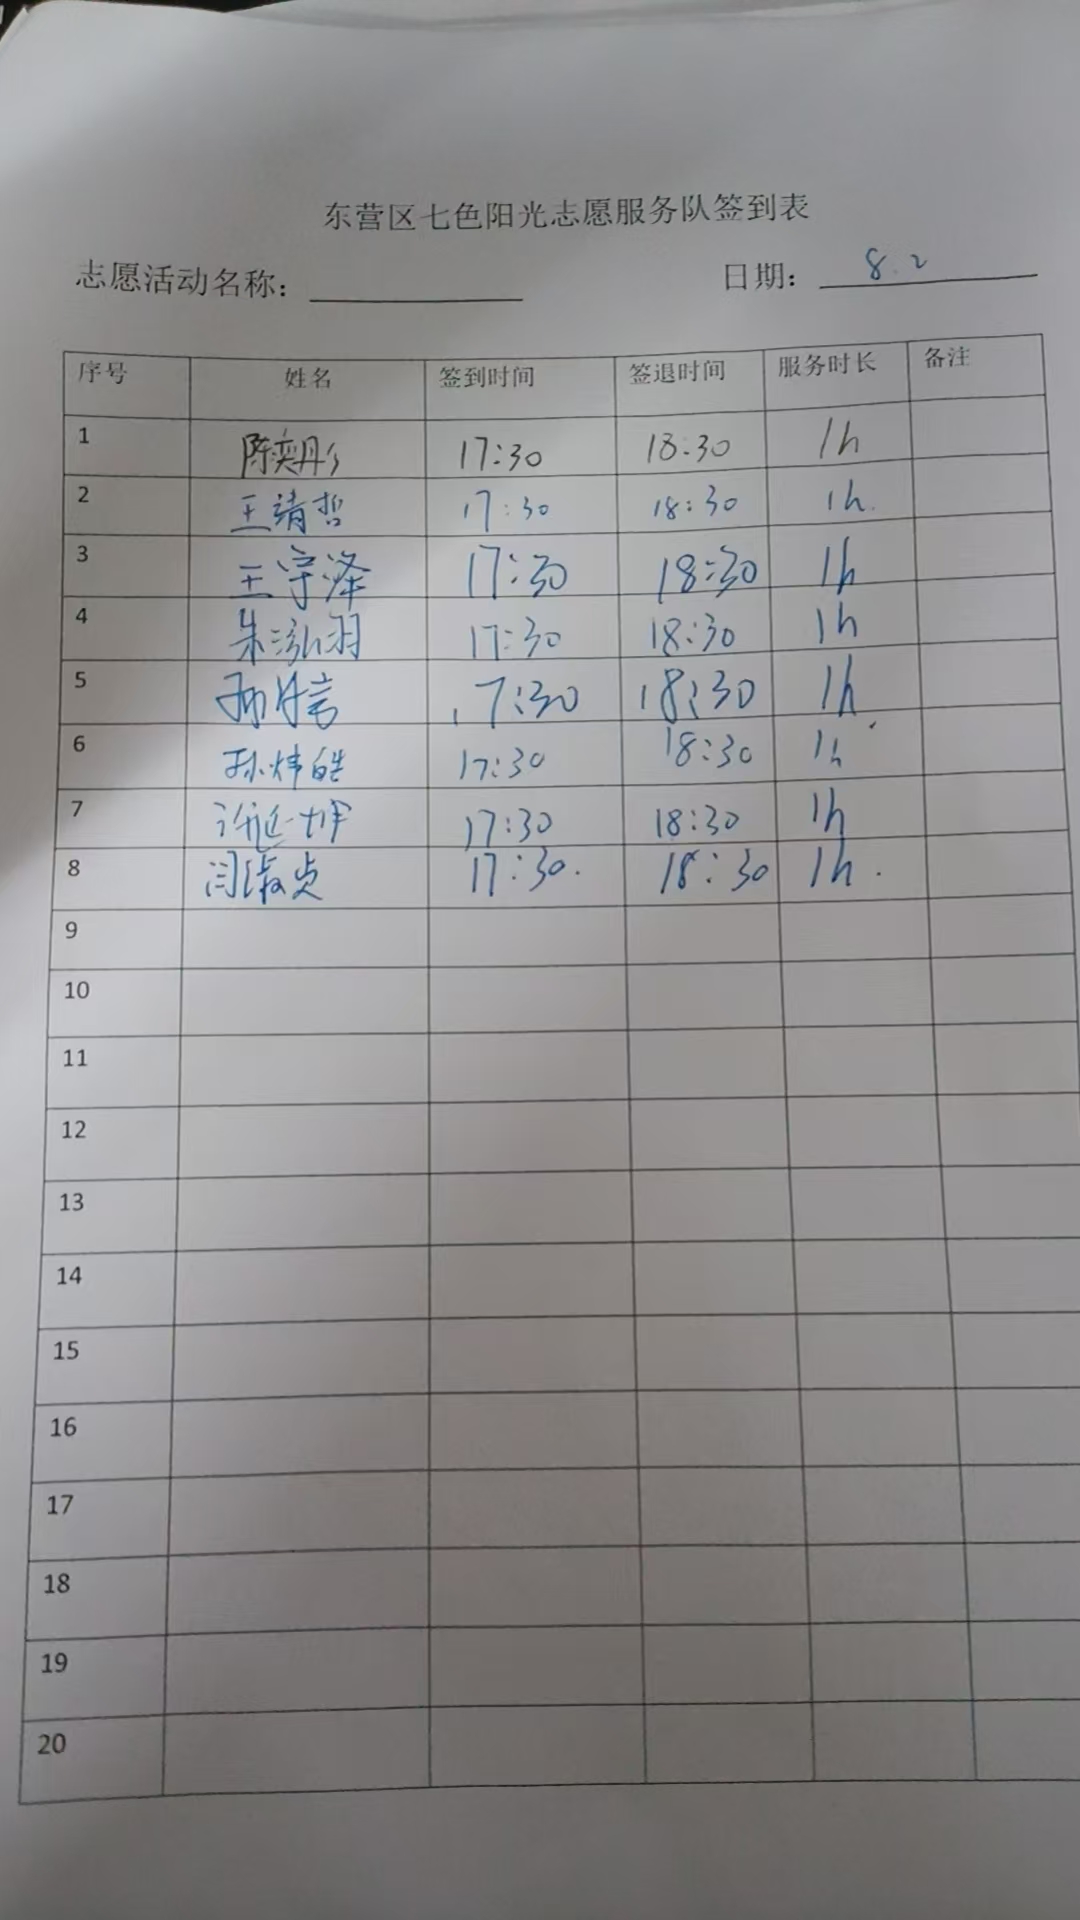 东营区七色阳光志愿服务队签到表
志愿活动名称： 日期： 8.2
序号 姓名 签到时间 签退时间 服务时长 备注
1 陈奕彤 17:30 18:30 1h
2 王靖哲 17:30 18:30 1h.
3 王宇泽 17:30 18:30 1h
4 朱泓羽 17:30 18:30 1h
5 17:30 18:30 1h
6 孙炜皓 17:30 18:30 1h
7 许延坪 17:30 18:30 1h
8 闫淑贞 17:30. 18:30 1h.
9
10
11
12
13
14
15
16
17
18
19
20